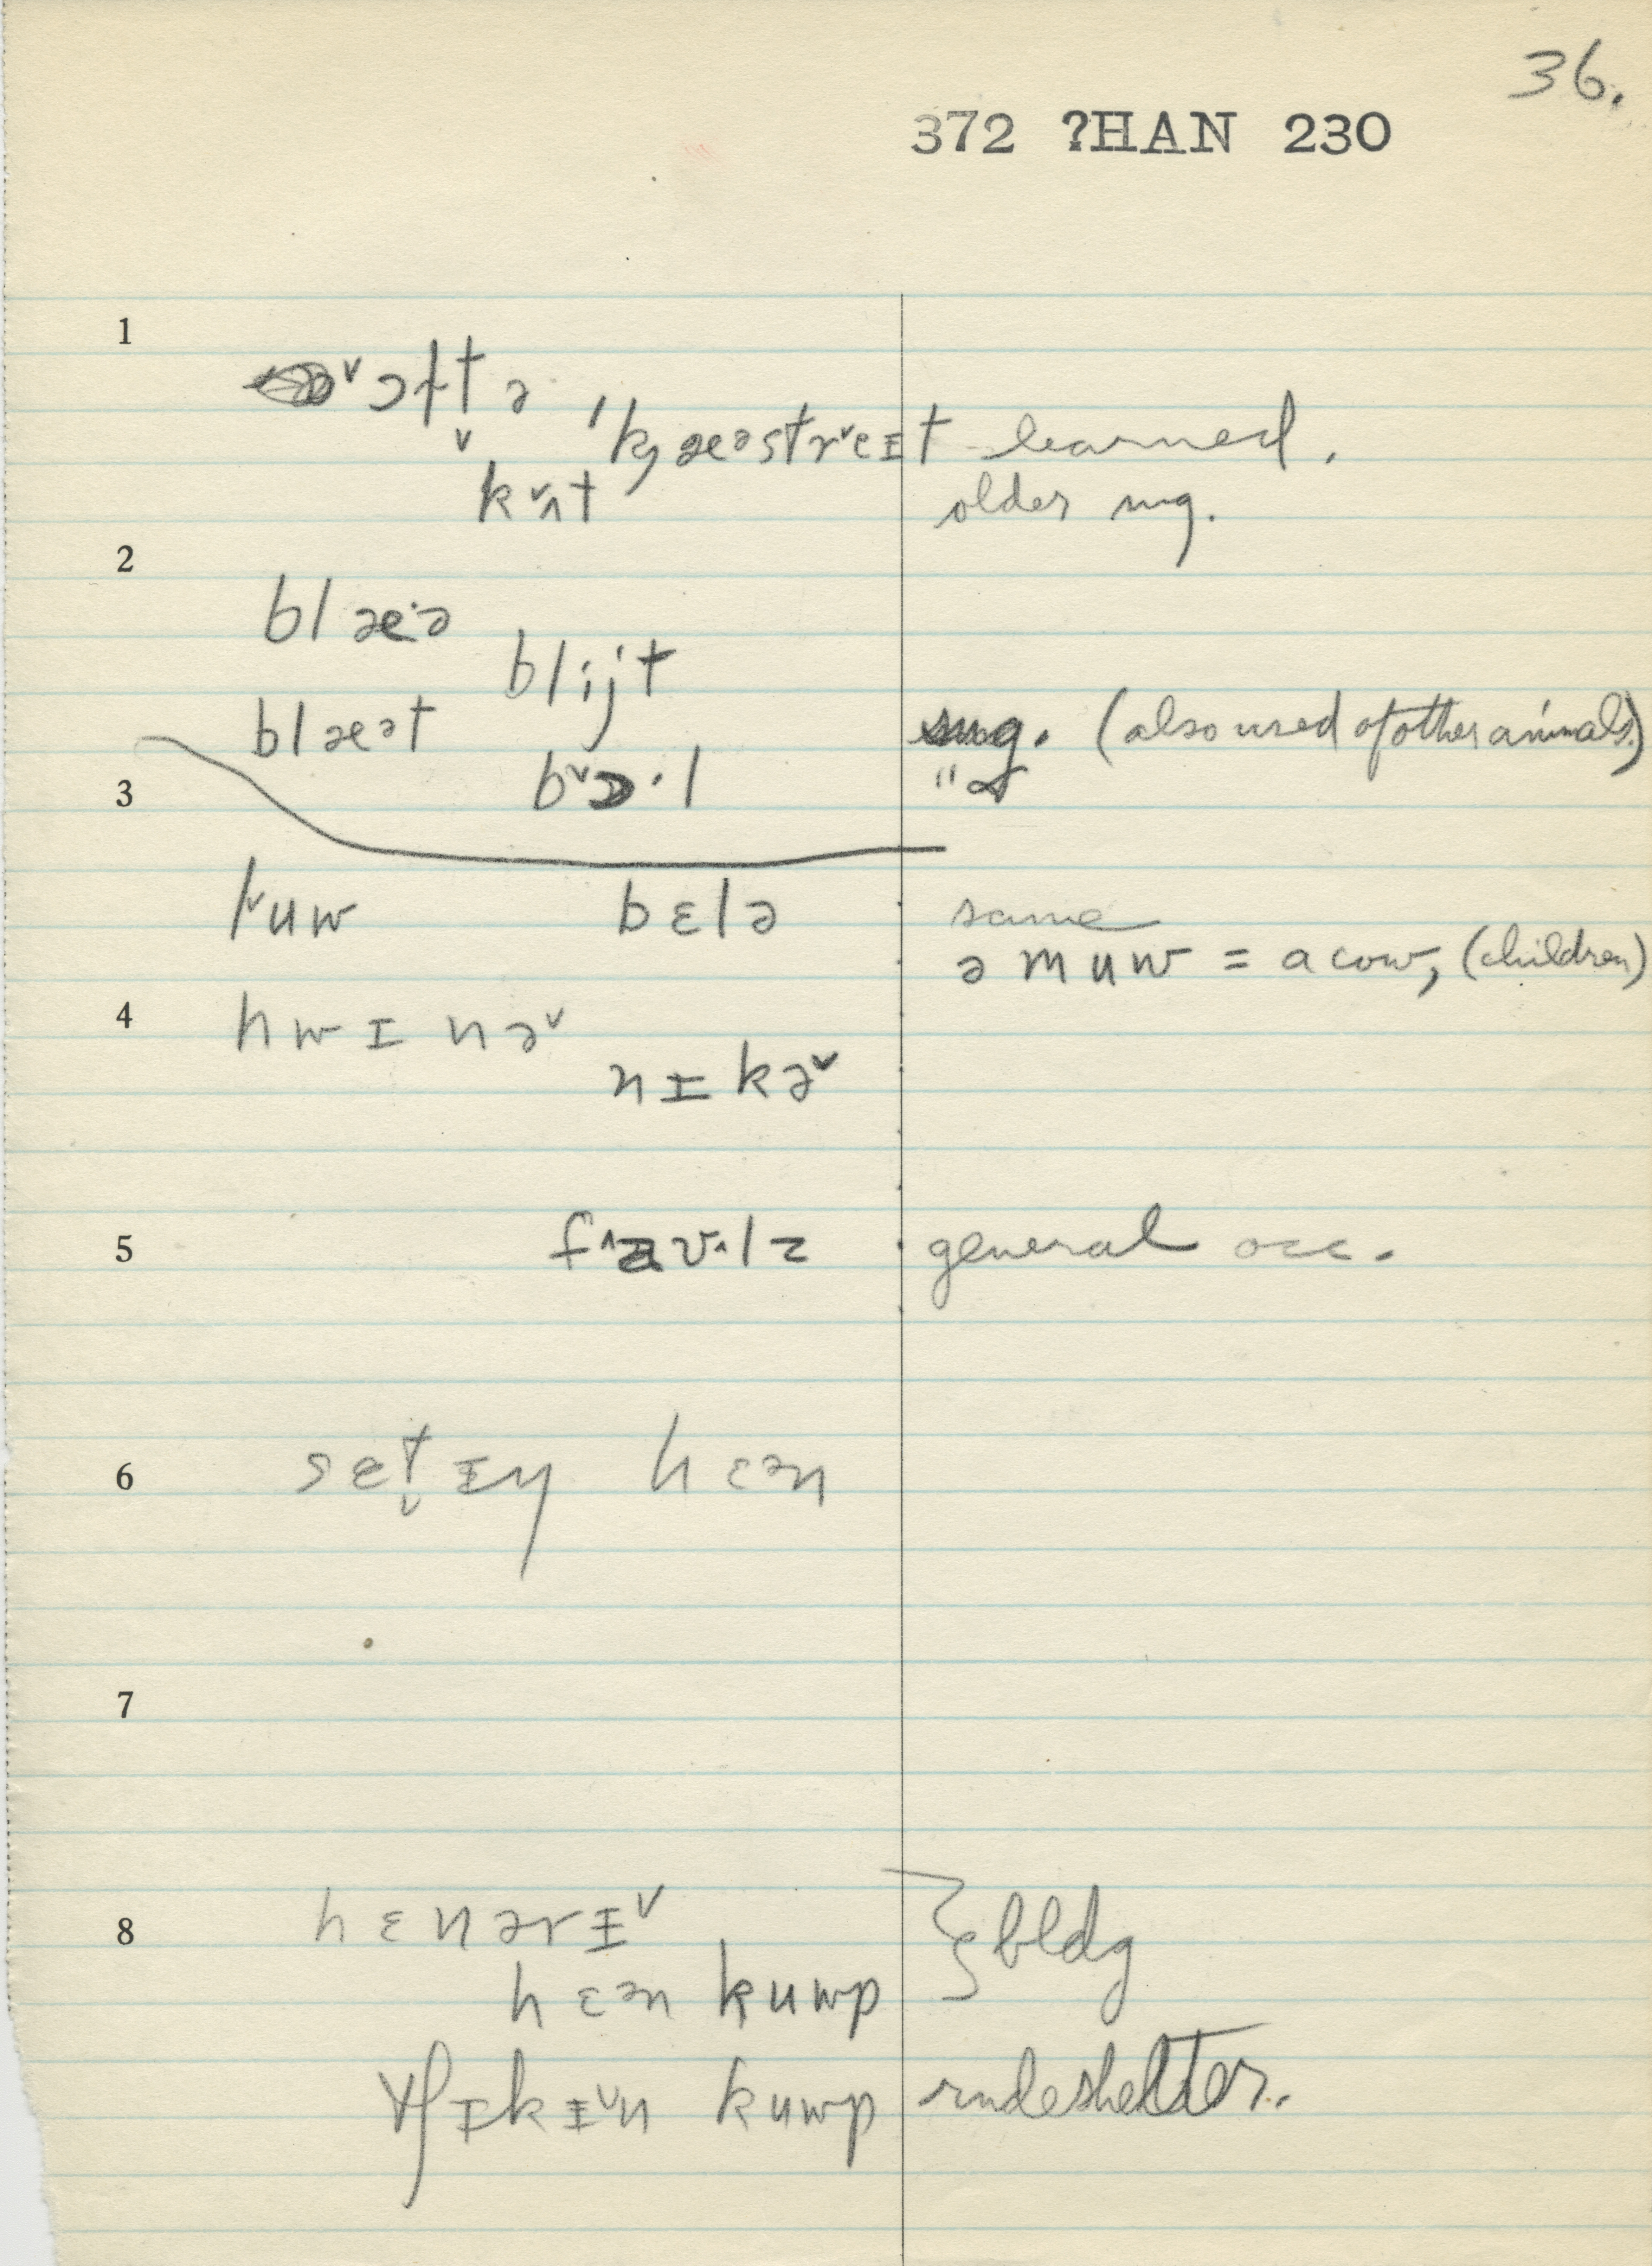 36.
372 ?HAN 230
1
ɔltə
ˈkjæəstrˇeɪt learned.
kˇʌt older
2
blæ·ə
blijt
blæət (also used of other animals)
3 bˇɔ·l "
muw bɛlə same
ə muw = a cow, (children)
4 hwɪnəˇ
nɪkəˇ
5 general occ.
6 sɛtɪŋ hɛən
7
8 hɛnərɪˇ
hɛən kuwp } bldg
tʃɪkɪˇn kuwp rude shelter.